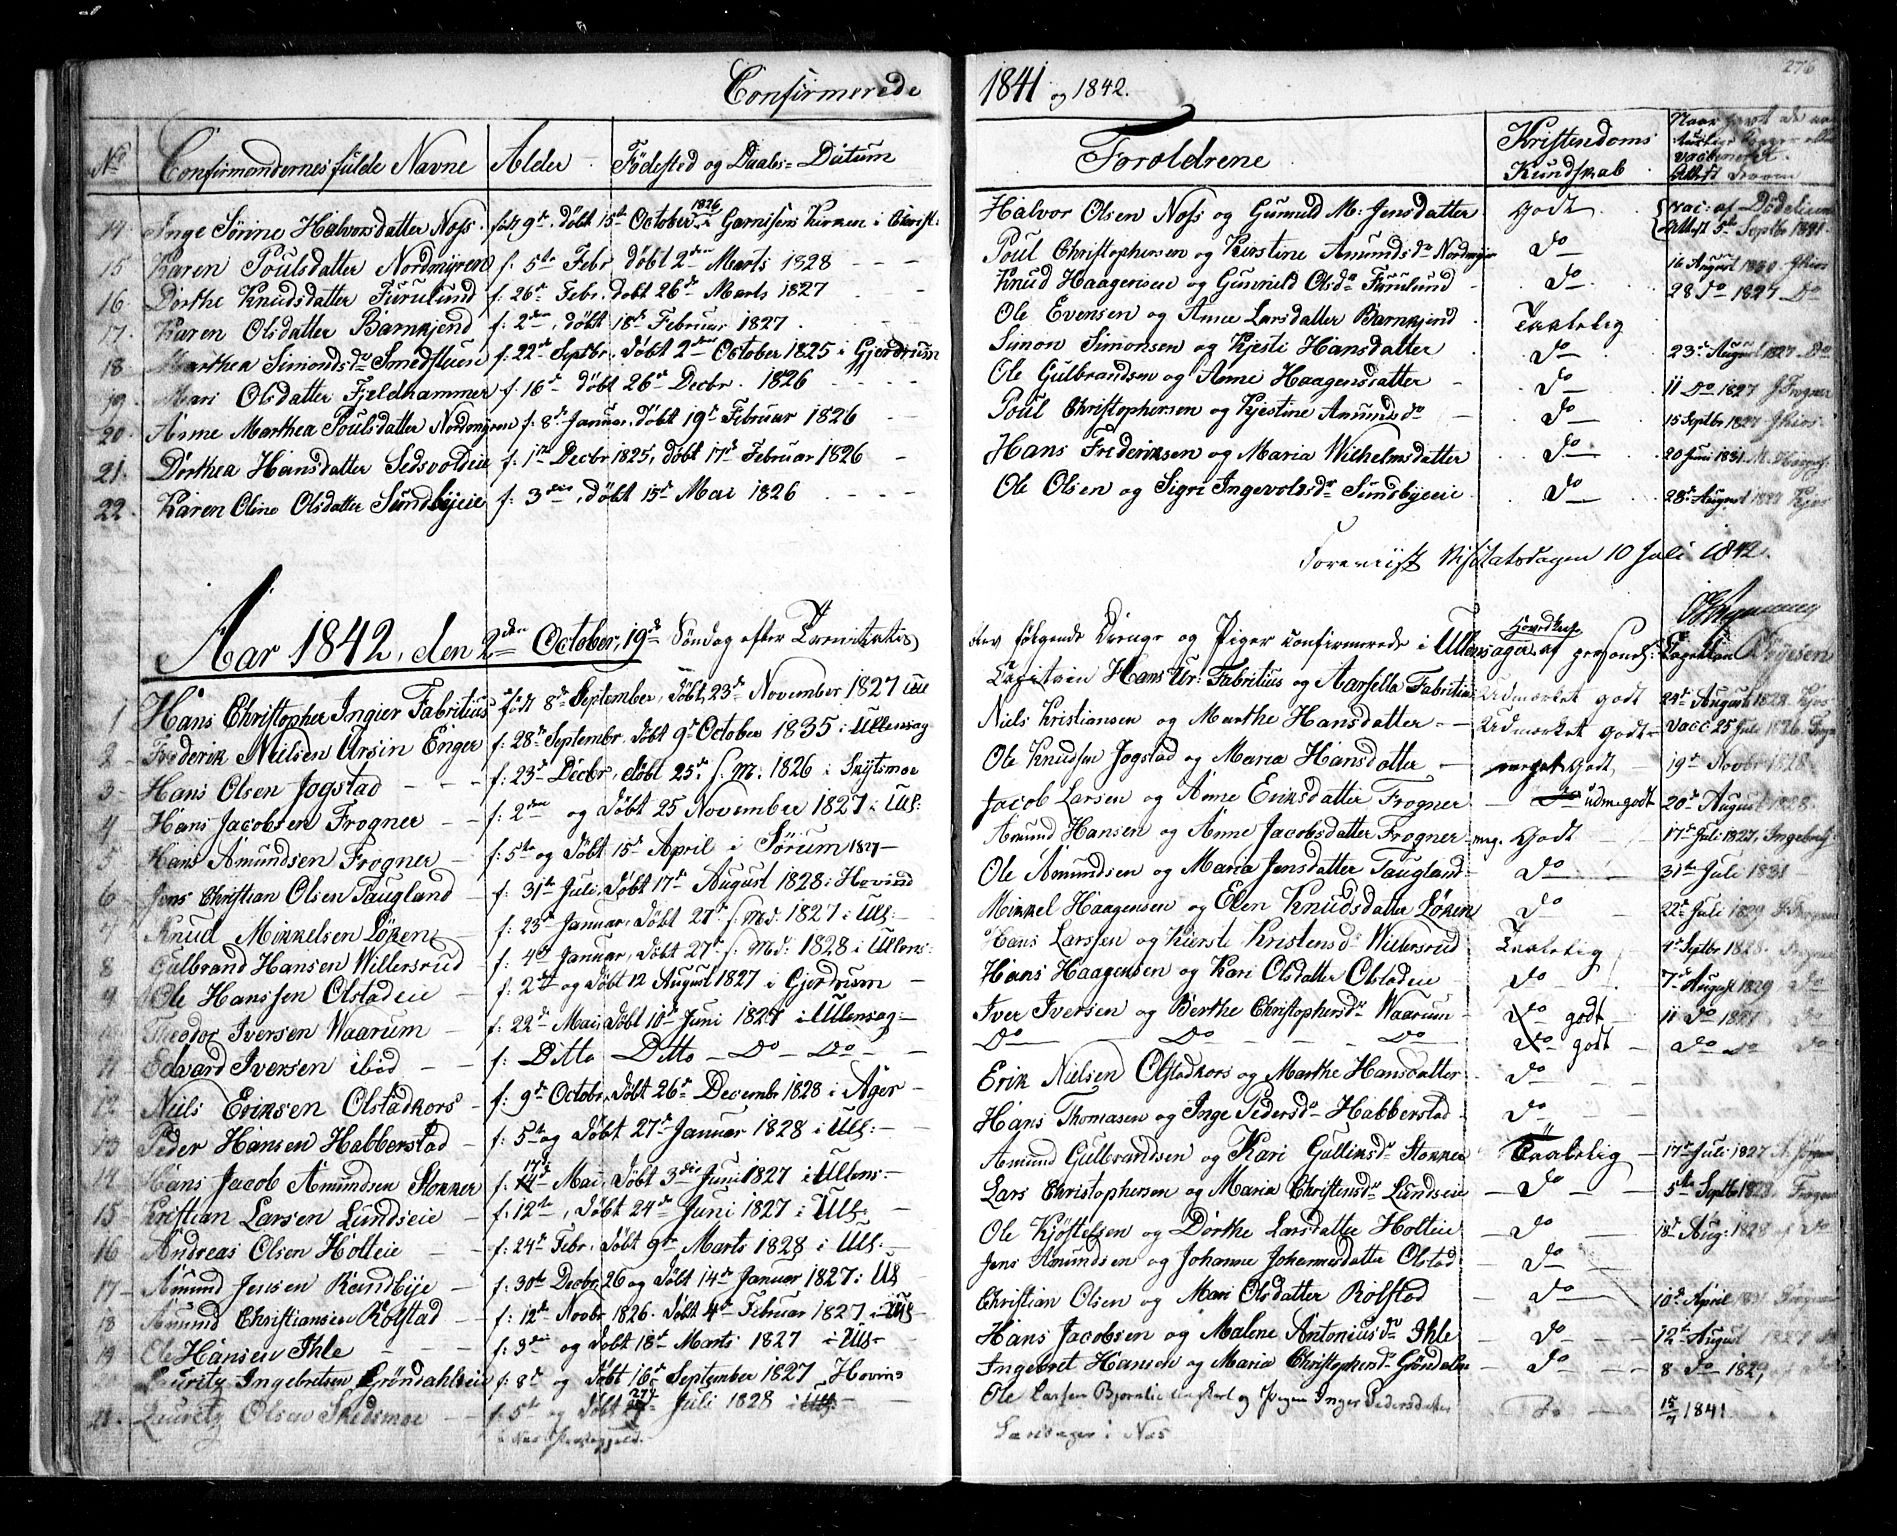 276
Confirmerede 1841 og 1842.
No Confirmandernes fulde Navne Alder Fødested og Daabs-Datum Forældrene Kristendoms Kundskab
14 Inge Sørine Halvorsdatter Noss født 9de, døbt 15de October 1826 i Garnisens Kirken i Christ: Halvor Olsen Noss og Gunnild M: Jensdatter Godt Vac: af Attest 5te Septbr 1831
15 Karen Poulsdatter Nordmyren f: 5te Febr døbt 2den Marts 1828 Poul Christophersen og Kirstine Amundsdr Nordmyren Do 16 August 1830
16 Dorthe Knudsdatter Furulund f: 26de Febr. døbt 26de Marts 1827 Knud Haagensen og Gunnild Olsdr Furulund Do 28 Do 1827 Do
17 Karen Olsdatter Barnkjend f: 2den, døbt 18de Februar 1827 Ole Evensen og Anne Larsdatter Barnkjend Taalelig
18 Marthea Simondsdr Smedstuen f: 22de Septbr. døbt 2den October 1825 i Gjerdrum Simon Simonsen og Kjesti Hansdatter Do 23de August 1827 Do
19 Mari Olsdatter Fjeldhammer f: 16de døbt 26de Decbr. 1826 Ole Gulbrandsen og Anne Haagensdatter Do 11 Do 1827 J Frogner
20 Anne Marthea Poulsdatter Nordmyren f: 8de Januar, døbt 19de Februar 1826 Poul Christophersen og Kjestine Amundsdr Do 15 Septbr 1827
21 Dorthea Hansdatter Sedsvoldeie f: 1ste Decbr 1825, døbt 17de Februar 1826 Hans Frederiksen og Maria Wilhelmsdatter Do 20 Juni 1831
22 Karen Oline Olsdatter Sundbyeie f: 3die, døbt 15de Mai 1826 Ole Olsen og Sigri Ingevoldsdr Sundbyeie Do 28de August
Foreviist Visitatsdagen 10 Juli 1842.
Aar 1842, den 2den October, 19de Søndag efter Trinitatis, blev følgende Drenge og Piger confirmerede i Ullensager Hovedkirke af personel: Capellan
1 Hans Christopher Ingier Fabritius født 8de September, døbt 23de November 1827 i Ull Capitain Hans Ur: Fabritius og Marselia Fabritius Udmærket godt 24de August 1828
2 Frederik Nielsen Ursin Enger f: 28de Septembr. døbt 9de October 1835 i Ullensag Niels Kristiansen og Marthe Hansdatter Udmærket godt Vacc 25 Juli 1826
3 Hans Olsen Jogstad f: 23de Decbr, døbt 25de s. M: 1826 i Skytsmoe Ole Knudsen Jogstad og Maria Hansdatter meget Godt 19de Novbr 1828
4 Hans Jacobsen Frogner f: 2den og døbt 25 November 1827 i Ull: Jacob Larsen og Anne Eriksdatter Frogner Do udm: godt 20de August 1828
5 Hans Amundsen Frogner f: 5te og døbt 15de April i Sørum 1827 Amund Hansen og Anne Jacobsdatter Frogner mg. Godt 17de Juli 1827,
6 Jens Christian Olsen Taugland f: 31te Juli, døbt 17de August 1828 i Hovind Ole Amundsen og Maria Jensdatter Taugland Do 31te Juli 1831
7 Knud Mikkelsen Løken f: 23de Januar, døbt 27de s. Md: 1827 i Ull: Mikkel Haagensen og Elen Knudsdatter Løken Do 22de Juli 1829
8 Gulbrand Hansen Willersrud f: 4de Januar, døbt 27de s. Md: 1828 i Ullens: Hans Larssen og Kierste Kristensdr Willersrud Taalelig 4de Septbr 1828.
9 Ole Hanssen Olstadeie f: 2den og døbt 12 August 1827 i Gjerdrum Hans Haagensen og Kari Olsdatter Olstadeie Do 7de August 1829 Do
10 Theodor Iversen Waarum f: 22de Mai, døbt 10de Juni 1827 i Ullensag: Iver Iversen og Berthe Christophersdr Waarum Do godt 11 Do 1827 Do
11 Edvard Iversen ibid f: Ditto Ditto Do Do Do Do Do Do godt Do Do Do
12 Niels Eriksen Olstadkors f: 9de October, døbt 26de Decembr 1828 i Ager Erik Nielsen Olstadkors og Marthe Hansdatter Do
13 Peder Hansen Habberstad f: 5te og døbt 27de Januar 1828 i Ull: Hans Thomasen og Inge Pedersdr Habberstad Do
14 Hans Jacob Amundsen Stokker f: 17de Mai, døbt 3die Juni 1827 i Ullens: Amund Gulbrandsen og Kari Gulliksdr Stokker Taalelig 17de Juli 1827
15 Kristian Larsen Lundseie f: 12te, døbt 24de Juni 1827 i Ull: Lars Christophersen og Maria Christensdr Lundseie Do 5te Septbr 1828
16 Andreas Olsen Holteie f: 24de Febr. døbt 9de Marts 1828 i Ull: Ole Kjøstelsen og Dorthe Larsdatter Holteie Do 18de Aug: 1828 Do
17 Amund Jensen Randbye f: 30te Decbr. 26 og døbt 14de Januar 1827 i Ull Jens Amundsen og Johanne Johannesdatter Olstad Do
18 Amund Christiansen Rolstad f: 12te Novbr 1826. døbt 4de Februar 1827 i Ull Christian Olsen og Mari Olsdatter Rolstad Do 10de April
19 Ole Hansen Ihle f: 3die og døbt 18de Marts 1827 i Ull Hans Jacobsen og Malene Antoniusdr Ihle Do 12te August
Lauritz Ingebretsen Grøndahlseie f: 8de og døbt 16de September 1827 Hovind Ingebret Hansen og Maria Christophersdr Grøndahl Do 8 Do 1829
21 Lauritz Olsen Skedsmoe f: 5te og døbt 27de Juli 1828 i Ull: Ole Larsen Bjørnlie Ungkarl og Pigen Inger Pedersdatter Do 15/7 1841
i Næs i Næs